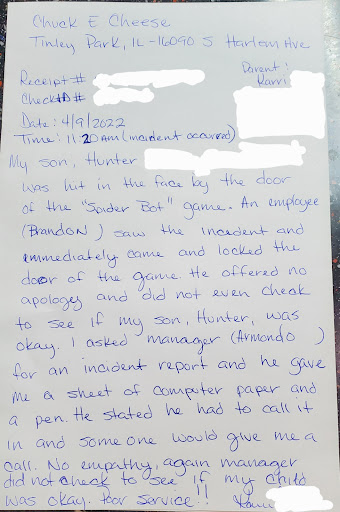 Chuck E Cheese
Tinley Park, IL - 16090 S Harlem Ave
Parent:
Karri
Receipt #
Check ID #
Date: 4/9/2022
Time: 11:20am (incident occurred)
My son, Hunter
was hit in the face by the door
of the "Spider Bot" game. An employee
(Brandon ) saw the incedent and
immediately came and locked the
door of the game. He offered no
apology and did not even check
to see if my son, Hunter, was
okay. I asked manager (Armondo )
for an incident report and he gave
me a sheet of computer paper and
a pen. He stated he had to call it
in and someone would give me a
call. No empathy, again manager
did not check to see if my child
was okay. Poor service!!